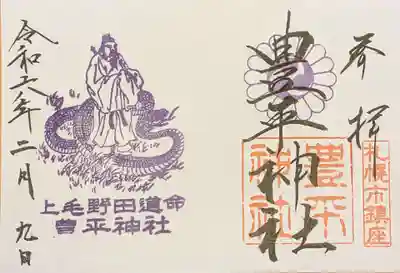 奉拝
札幌市鎮座
豊平神社
豊平
神社
上毛野田道命
豊平神社
令和六年二月九日